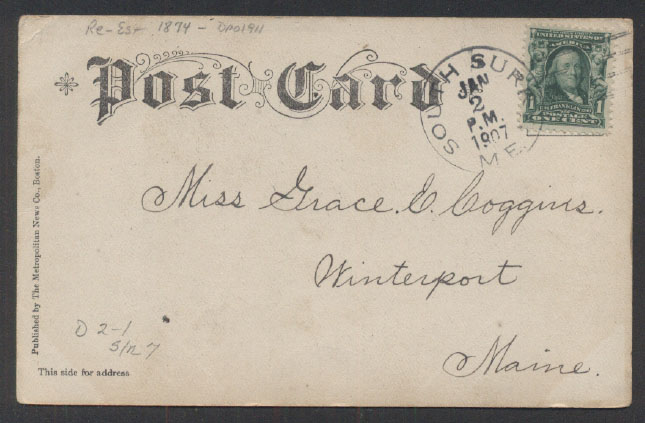 Re-Est 1874 - DPO1911
Post Card
SOUTH SURR
ME.
JAN
2
P.M.
1907
UNITED STATES OF
AMERICA
1 1
FRANKLIN
POSTAGE
ONE CENT
Miss Grace. E. Coggins.
Winterport
Maine.
Published by The Metropolitan News Co., Boston.
D 2-1
S/R 7
This side for address